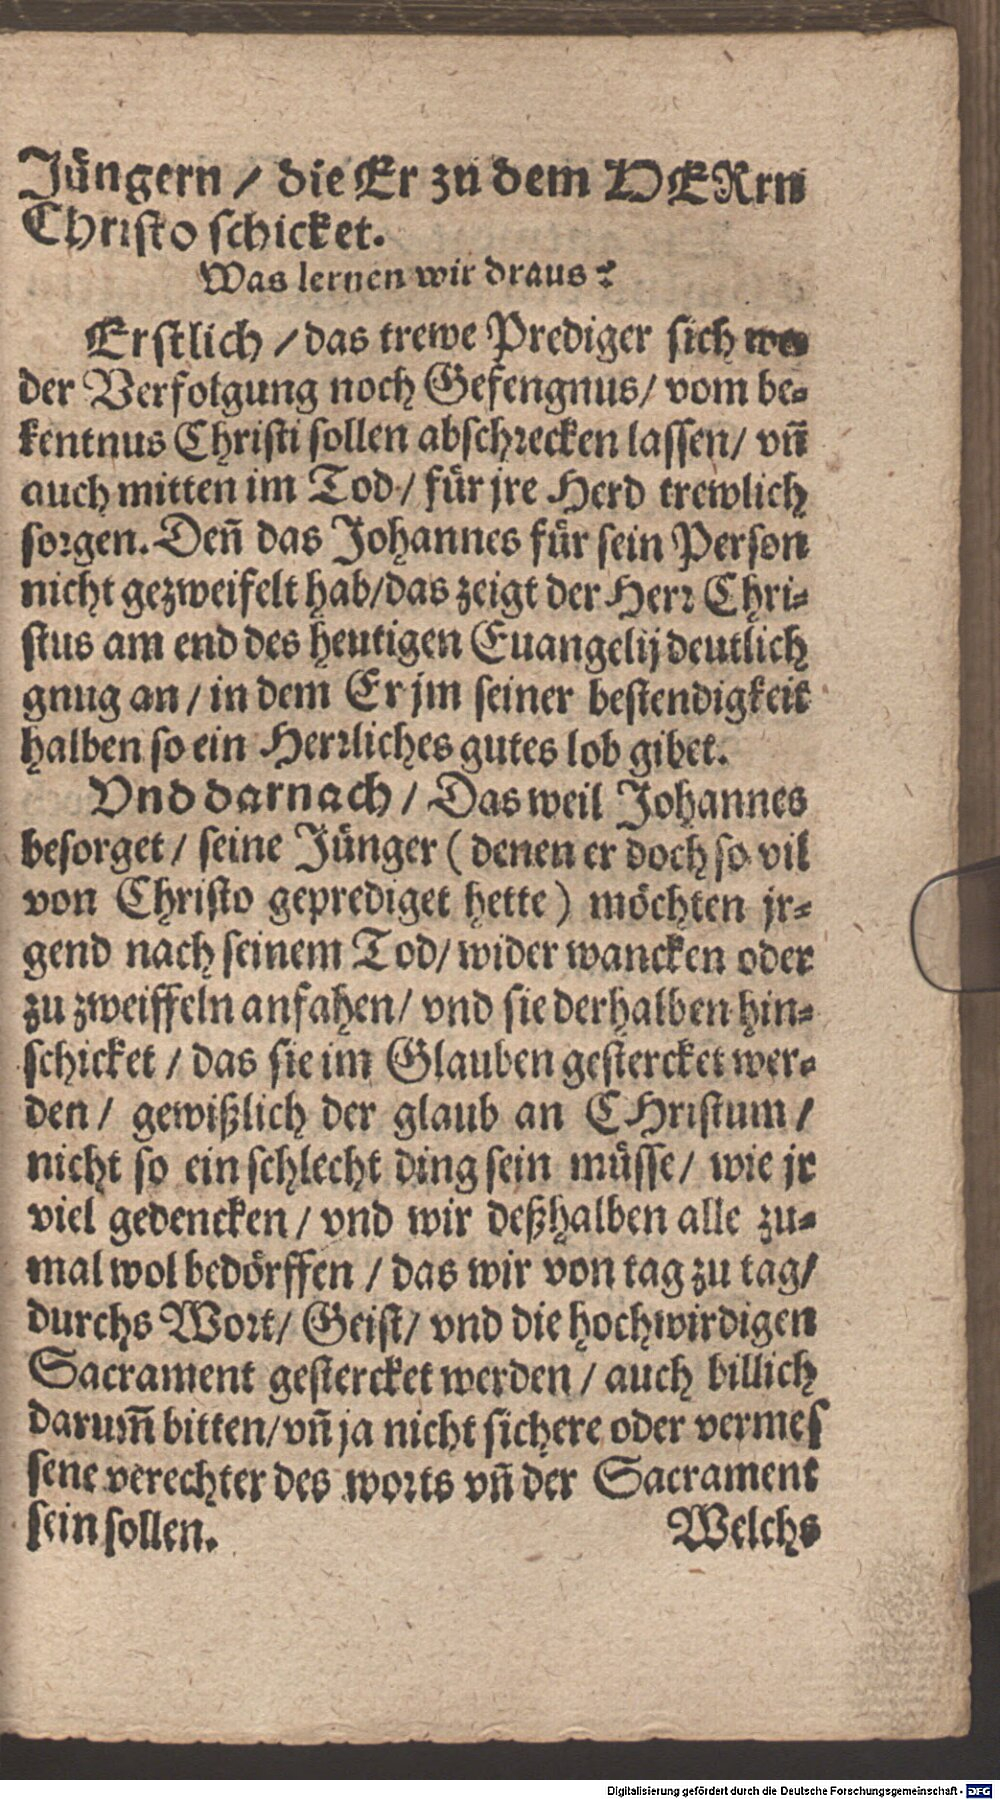 Jüngern / die Er zu dem HERrn
Christo schicket.
Was lernen wir draus?
Erstlich / das trewe Prediger sich we
der Verfolgung noch Gefengnus / vom be-
kentnus Christi sollen abschrecken lassen / vñ
auch mitten im Tod / für jre Herd trewlich
sorgen. Deñ das Johannes für sein Person
nicht gezweifelt hab / das zeigt der Herr Chri-
stus am end des heutigen Euangelij deutlich
gnug an / in dem Er jm seiner bestendigkeit
halben so ein Herrliches gutes lob gibet.
Vnd darnach / Das weil Johannes
besorget / seine Jünger ( denen er doch so vil
von Christo geprediget hette ) möchten jr-
gend nach seinem Tod / wider wancken oder
zu zweiffeln anfahen / vnd sie derhalben hin-
schicket / das sie im Glauben gestercket wer-
den / gewißlich der glaub an CHristum /
nicht so ein schlecht ding sein müsse / wie jr
viel gedencken / vnd wir deßhalben alle zu-
mal wol bedörffen / das wir von tag zu tag /
durchs Wort / Geist / vnd die hochwirdigen
Sacrament gestercket werden / auch billich
darum̃ bitten / vñ ja nicht sichere oder vermes
sene verechter des worts vñ der Sacrament
sein sollen. Welchs
Digitalisierung gefördert durch die Deutsche Forschungsgemeinschaft - DFG